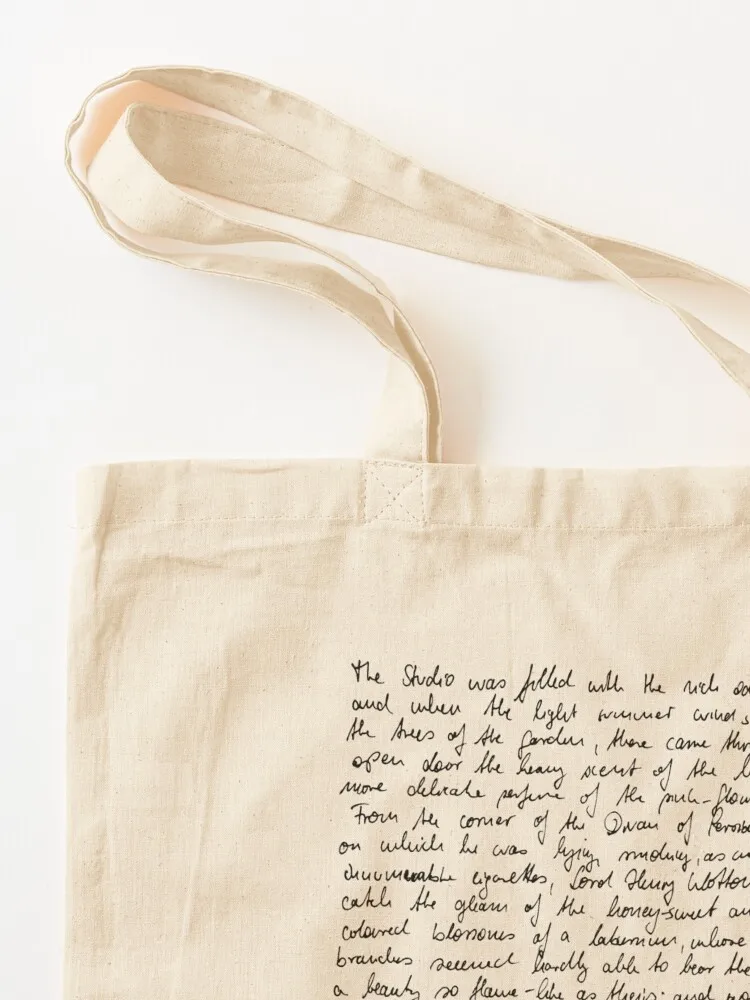 The Studio was filled with the rich od
and when the light summer wind s
the trees of the garden, there came thr
open door the heavy scent of the l
more delicate perfume of the pink-flow
From the corner of the Divan of Persia
on which he was lying, smoking, as w
innumerable cigarettes, Lord Henry Wotton
catch the gleam of the honey-sweet an
coloured blossoms of a laburnum, whose
branches seemed hardly able to bear the
a beauty so flame-like as theirs; and no